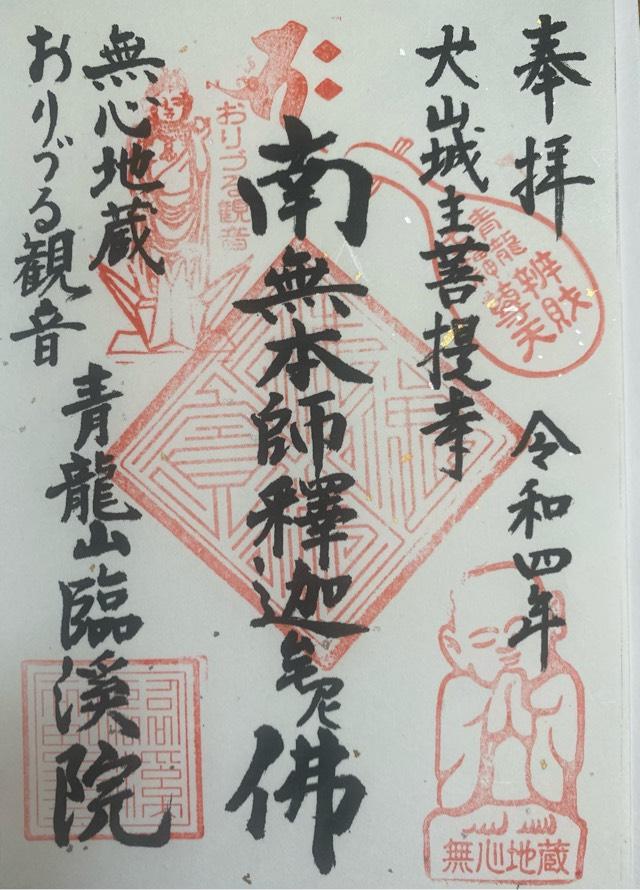 奉拝
令和四年
犬山城主菩提寺
南無本師釋迦牟尼佛
無心地蔵
おりづる観音
青龍山臨溪院
おりづる観音
青龍
辨財尊天
無心地蔵